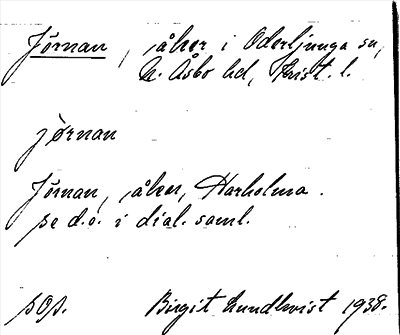 Jörnan, åker i Oderljunga sn,
N. Åsbo hd, Krist. l.
jö̀rnan
Jörnan, åker, Harholma.
se d.o. i dial. saml.
sOp. Birgit Lundkvist 1938.